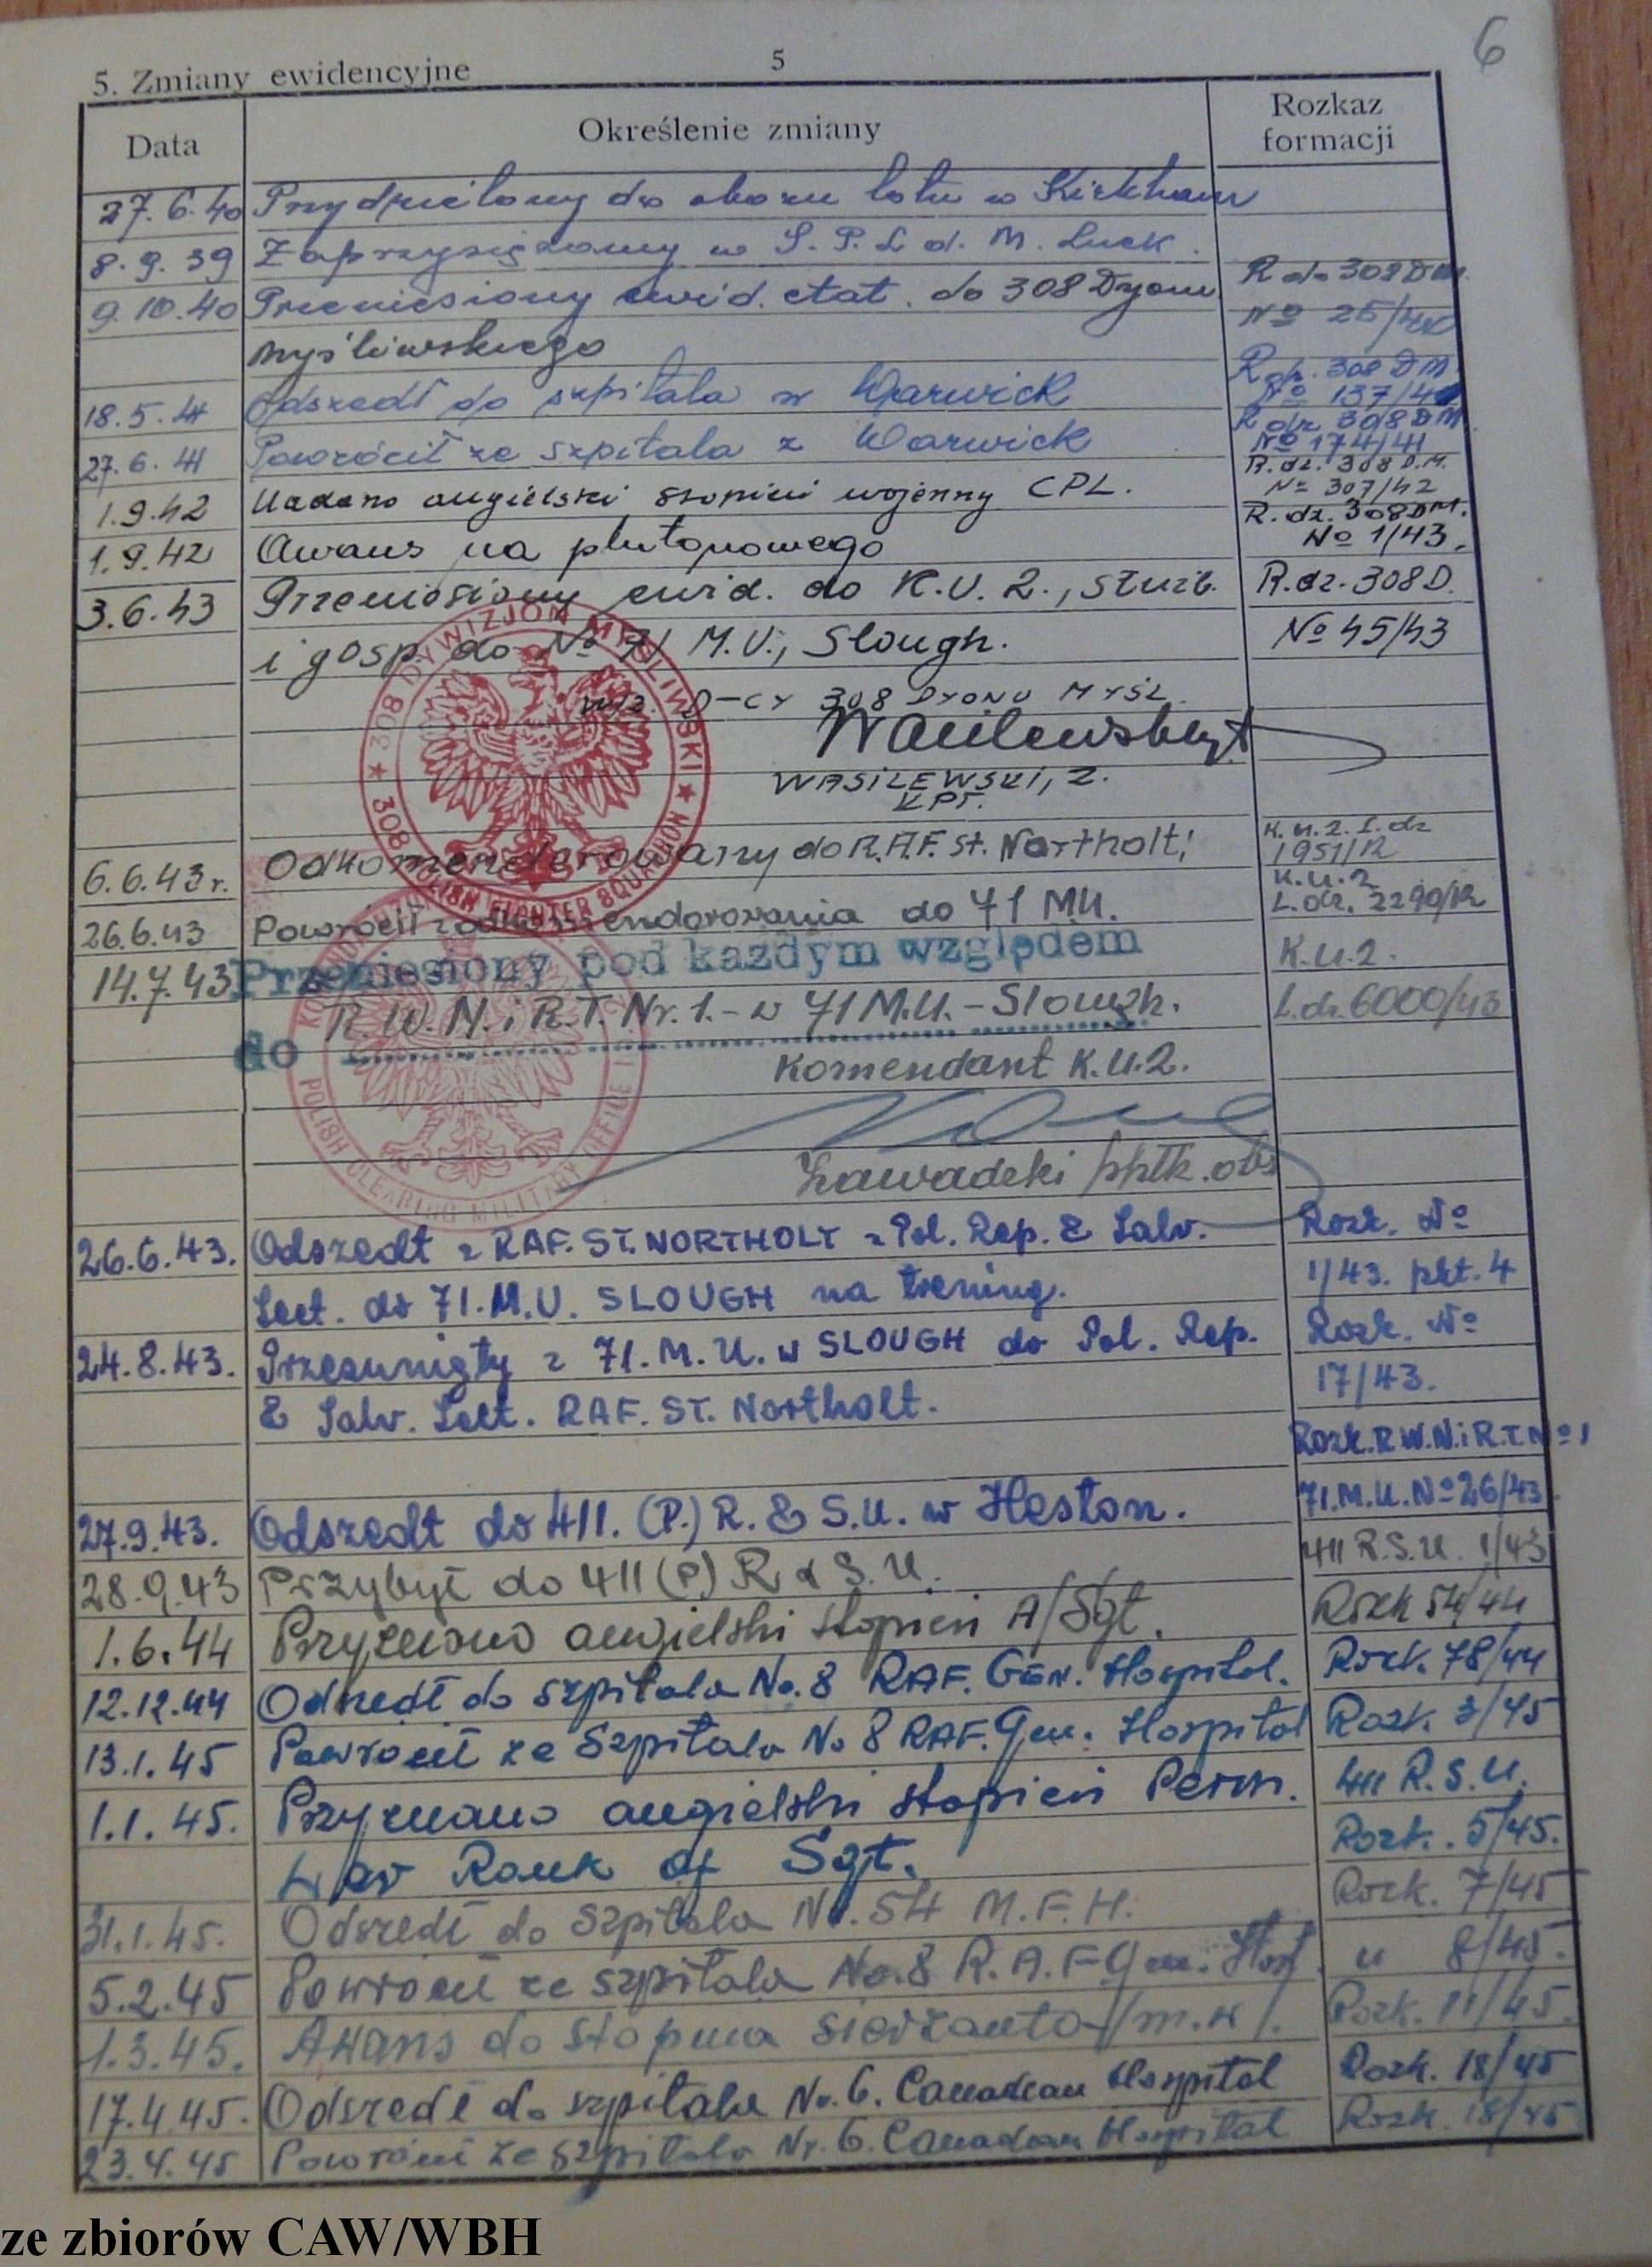 6
5. Zmiany ewidencyjne
5
Data
Określenie zmiany
Rozkaz
formacji
27.6.40 Przydzielony do obozu lotn w Kirkham
8.9.39 Zaprzysiężony w S. P. L d. M. Luck.
9.10.40 Przeniesiony ewid. etat. do 308 Dyonu R dz 308 DM.
myśliwskiego No 25/40
18.5.41 Odszedł do szpitala w Warwick R dz. 308 DM No 137/41
27.6.41 Powrócił ze szpitala z Warwick R dz 308 DM No 174/41
1.9.42 Nadano angielski stopień wojenny CPL. R. dz. 308 D.M. No 307/42
1.9.42 Awans na plutonowego R. dz. 308 DM. No 1/43.
3.6.43 Przeniesiony ewid. do K.U.2., służb. R. dz. 308 D.
i gosp. do No 71 M.U., Slough. No 45/43
wz. D-CY 308 DYONU MYŚL.
Wasilewski
WASILEWSKI, Z.
KPT.
★ 308 DYWIZJON MYŚLIWSKI ★ 308 POLISH FIGHTER SQUADRON
6.6.43r. Odkomenderowany do R.A.F. St. Northolt; K.U.2. L.dz 1951/R
26.6.43 Powrócił z odkomenderowania do 71 MU. K.U.2 L.dz. 2290/R
14.7.43 Przeniesiony pod każdym względem K.U.2.
do R.W.N. i R.T. Nr.1.- w 71 M.U. - Slough. L.dz. 6000/43
Komendant K.U.2.
Zawadzki ppłk. obs
POLISH CLEARING MILITARY OFFICE
26.6.43. Odszedł z RAF. ST. NORTHOLT z Pol. Rep. & Salv. Rozk. No
Sect. do 71. M.U. SLOUGH na trening. 1/43. pkt. 4
24.8.43. Przesunięty z 71. M.U. w SLOUGH do Pol. Rep. Rozk. No
& Salv. Sect. RAF. ST. Northolt. 17/43.
Rozk. R.W.N. i R.T. No 1
27.9.43. Odszedł do 411. (P.) R. & S.U. w Heston. 71. M.U. No 26/43
28.9.43 Przybył do 411 (P) R & S.U. 411 R.S.U. 1/43
1.6.44 Przyznano angielski stopień A/Sgt. Rozk 54/44
12.12.44 Odszedł do szpitala No. 8 RAF. Gen. Hospital. Rozk. 78/44
13.1.45 Powrócił ze Szpitala No 8 RAF. Gen. Hospital Rozk. 3/45
1.1.45. Przyznano angielski stopień Perm. 411 R.S.U.
War Rank of Sgt. Rozk. 5/45.
31.1.45. Odszedł do Szpitala No. 54 M.F.H. Rozk. 7/45
5.2.45 Powrócił ze szpitala No. 8 R.A.F Gen. Hosp. " 8/45.
1.3.45. Awans do stopnia sierżanta /m.w/. Rozk. 11/45.
17.4.45. Odszedł do szpitala No. 6. Canadian Hospital Rozk. 18/45
23.4.45 Powrócił ze szpitala Nr. 6. Canadian Hospital Rozk. 18/45
ze zbiorów CAW/WBH